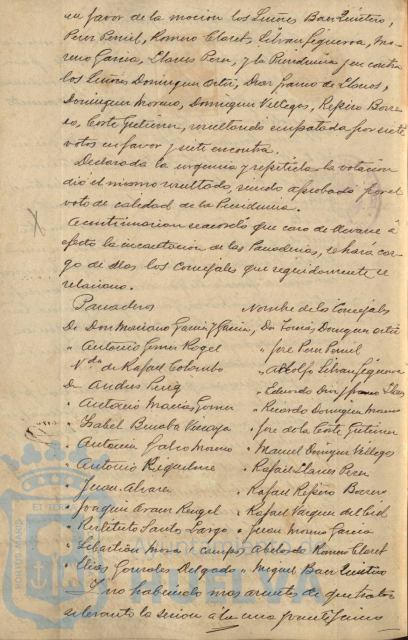 en favor de la moción los Señores Baer Quintero,
Perez Poniel, Romero Claret, Silvan Figueroa, Mo-
reno Garcia, Llanes Perez, y la Presidencia y en contra
los Señores Dominguez Ortiz, Diaz Franco de Llanos,
Dominguez Moreno, Dominguez Villegas, Rofriro Borre-
ro, Corte Gutierrez, resultando empatada por siete
votos en favor y siete en contra.
Declarada la urgencia y repetida la votacion
dió el mismo resultado, siendo aprobado por el
voto de calidad de la Presidencia.
A continuacion se acordó que caso de llevarse á
efecto la incautacion de las Panaderias, se hará car-
go de ellas los Concejales que seguidamente se
relacionan.
Panaderos Nombre de los Concejales
De Don Mariano Garcia y Garcia, Don Tomás Dominguez Ortiz
" Antonio Gomez Rogel " Jose Perez Poniel
Vda de Rafael Colombo " Adolfo Silvan Figueroa
D Andres Puig " Eduardo Diaz Franco Llanos
" Antonio Macias Gomez " Ricardo Dominguez Moreno
" Isabel " Jose de la Corte Gutierrez
" Antonia Galvo Moreno " Manuel Dominguez Villegas
" Antonio " Rafael Llanes Perez
" Juan Alvarez " Rafael Borrero
" Joaquin Rangel " Rafael Vazquez del Cid
" Santos Largo " Juan Moreno Garcia
" Sebastian Mora y Campos Abelardo Romero Claret
" Elias Gonzalez Delgado " Miguel Baer Quintero
Y no habiendo mas asuntos de que tratar
se levantó la sesion á la una
HUELVA